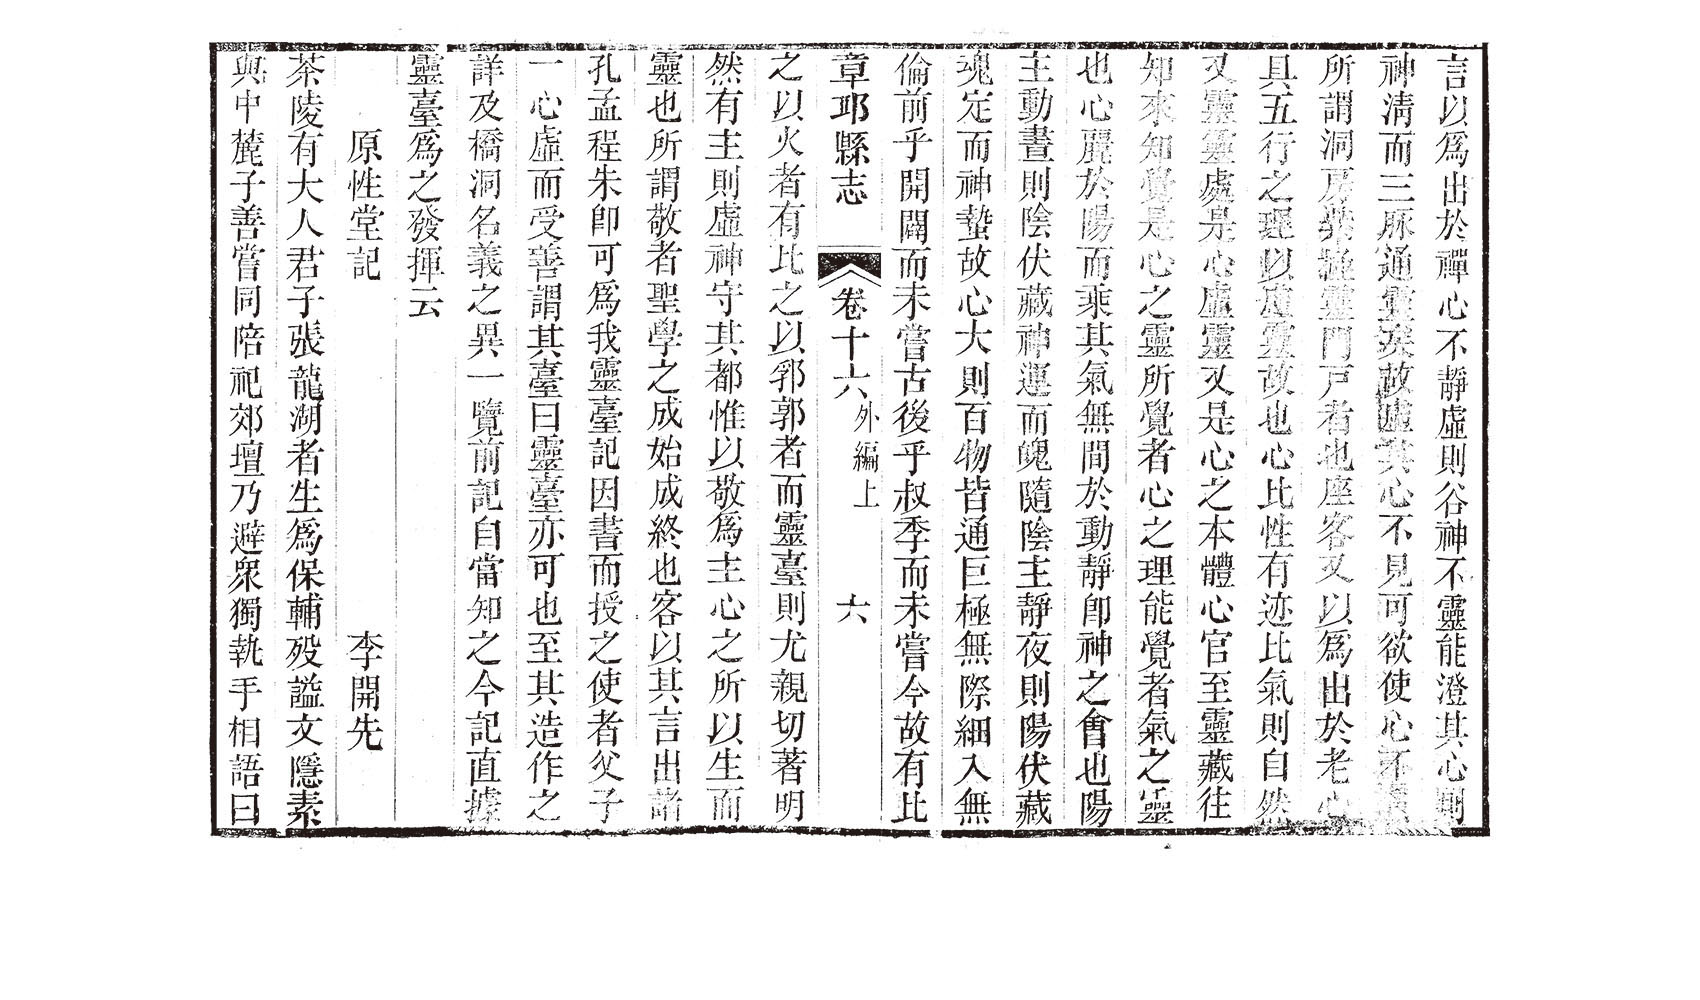 言以爲出於禪心不靜虛則谷神不靈能澄其心則
神淸而三脉通靈矣故虛其心不見可欲使心不
所謂洞房紫極靈門戸者也座客又以爲出於老心
具五行之理以虛靈故也心比性有迹比氣則自然
又靈靈處是心虛靈又是心之本體心官至靈藏往
知來知覺是心之靈所覺者心之理能覺者氣之靈
也心麗於陽而乘其氣無間於動靜卽神之會也陽
主動晝則陰伏藏神運而魄隨陰主靜夜則陽伏藏
魂定而神蟄故心大則百物皆通巨極無際細入無
倫前乎開闢而未嘗古後乎叔季而未嘗今故有比
章邱縣志 卷十六外編上 六
之以火者有比之以郛郭者而靈臺則尤親切著明
然有主則虛神守其都惟以敬爲主心之所以生而
靈也所謂敬者聖學之成始成終也客以其言出諸
孔孟程朱卽可爲我靈臺記因書而授之使者父子
一心虛而受善謂其臺曰靈臺亦可也至其造作之
詳及橋洞名義之異一覽前記自當知之今記直據
靈臺爲之發揮云
原性堂記 李開先
茶陵有大人君子張龍湖者生爲保輔歿謚文隱素
與中麓子善嘗同陪祀郊壇乃避衆獨執手相語曰